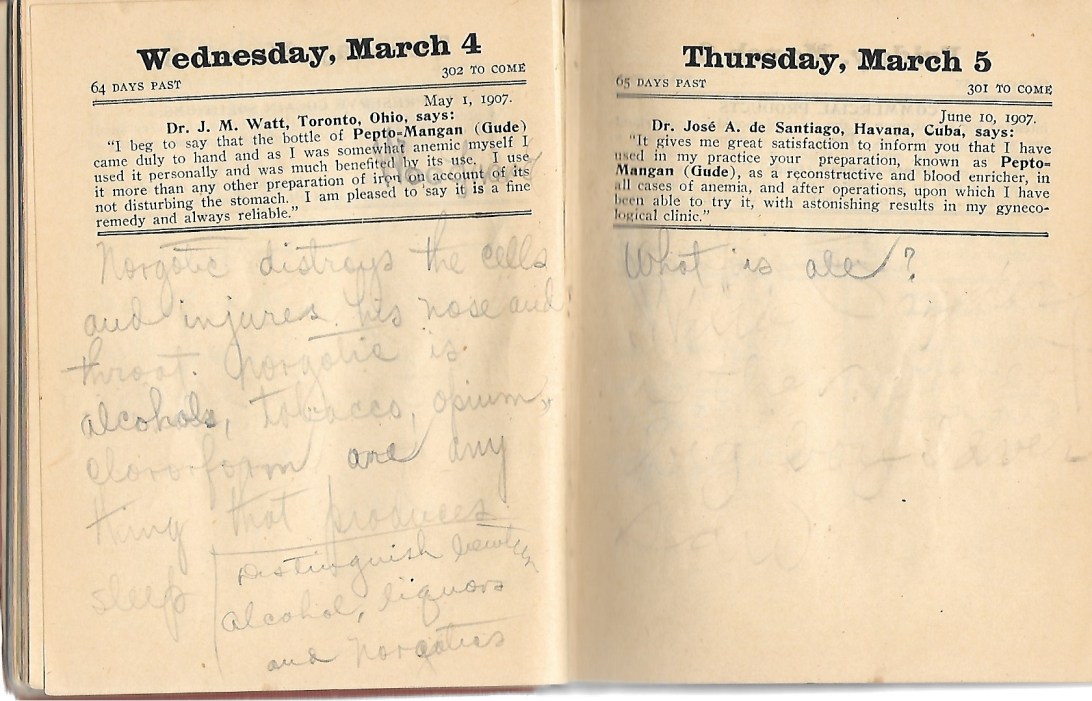 Wednesday, March 4
64 DAYS PAST
302 TO COME
May 1, 1907.
Dr. J. M. Watt, Toronto, Ohio, says:
"I beg to say that the bottle of Pepto=Mangan (Gude)
came duly to hand and as I was somewhat anemic myself I
used it personally and was much benefited by its use. I use
it more than any other preparation of iron on account of its
not disturbing the stomach. I am pleased to say it is a fine
remedy and always reliable."
Norgotic distroys the cells
and injures his nose and
throat. Norgotic is
alcohols, tobacco, opium,
cloroform are any
thing that produces
sleep
Distinguish
alcohol, liquors
and norgotics
Thursday, March 5
65 DAYS PAST
301 TO COME
June 10, 1907.
Dr. José A. de Santiago, Havana, Cuba, says:
"It gives me great satisfaction to inform you that I have
used in my practice your preparation, known as Pepto=
Mangan (Gude), as a reconstructive and blood enricher, in
all cases of anemia, and after operations, upon which I have
been able to try it, with astonishing results in my gyneco-
logical clinic."
What is ale?